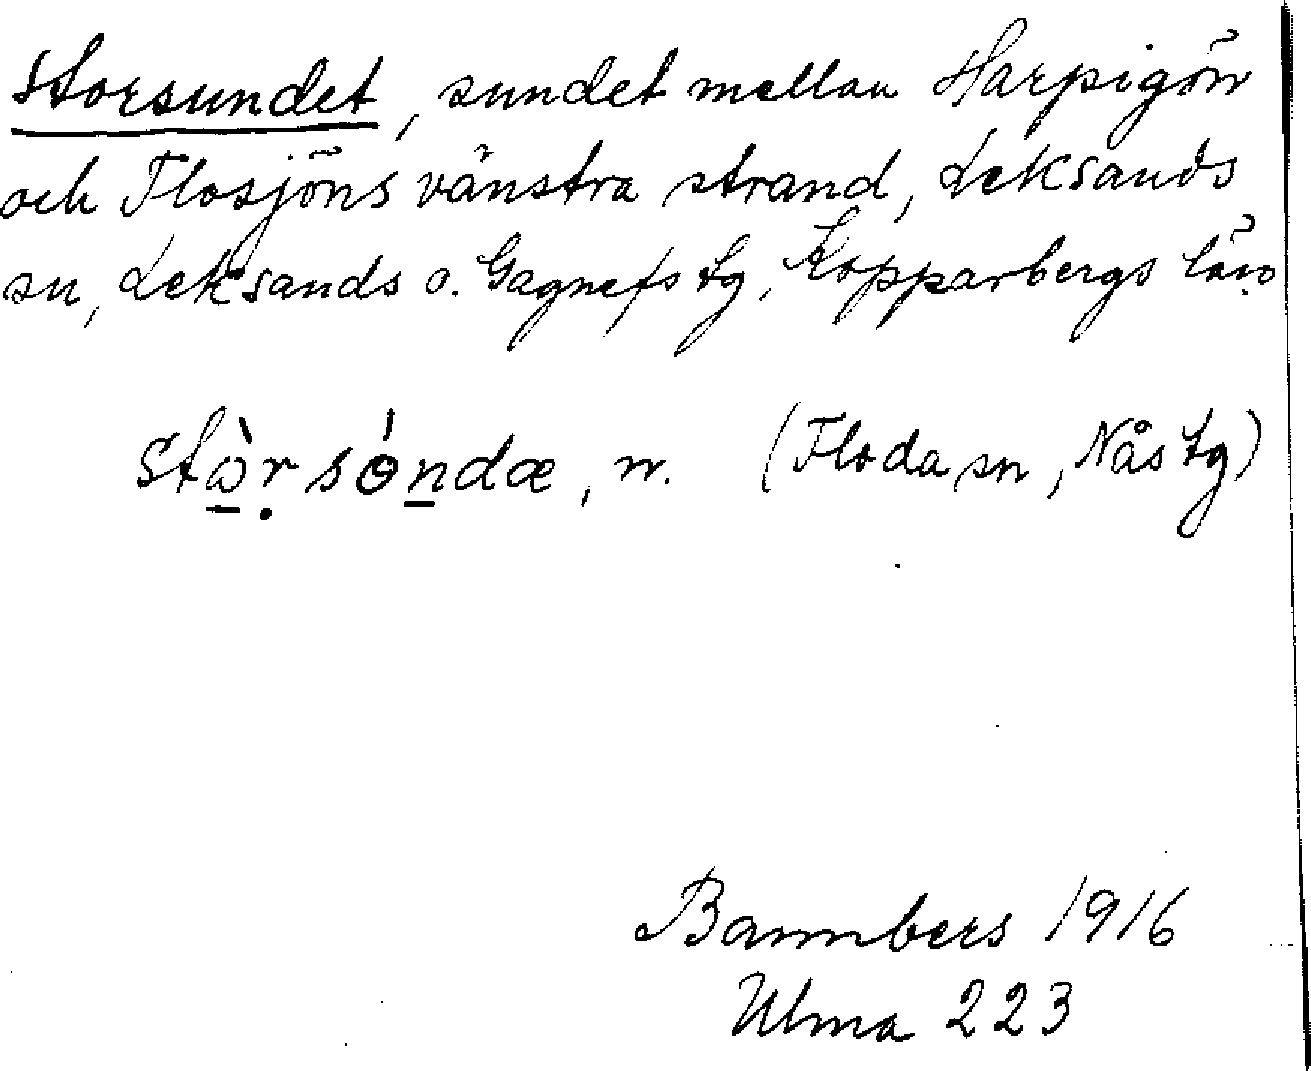 Storsundet, sundet mellan Harpigön
och Flosjöns vänstra strand, Leksands
sn, Leksands o. Gagnefs tg, Kopparbergs län
stὼ̲ṛsón̲dæ, n. (Floda sn, Nås tg)
Bannbers 1916
Ulma 223